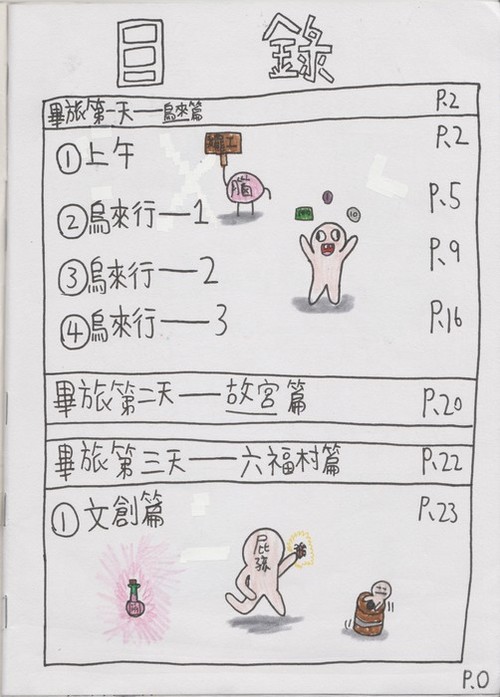 目錄
畢旅第一天──烏來篇 P.2
①上午 P.2
罷工
腦
②烏來行──1 P.5
③烏來行──2 P.9
④烏來行──3 P.16
畢旅第二天──故宮篇 P.20
畢旅第三天──六福村篇 P.22
①文創篇 P.23
屁孩
P.0